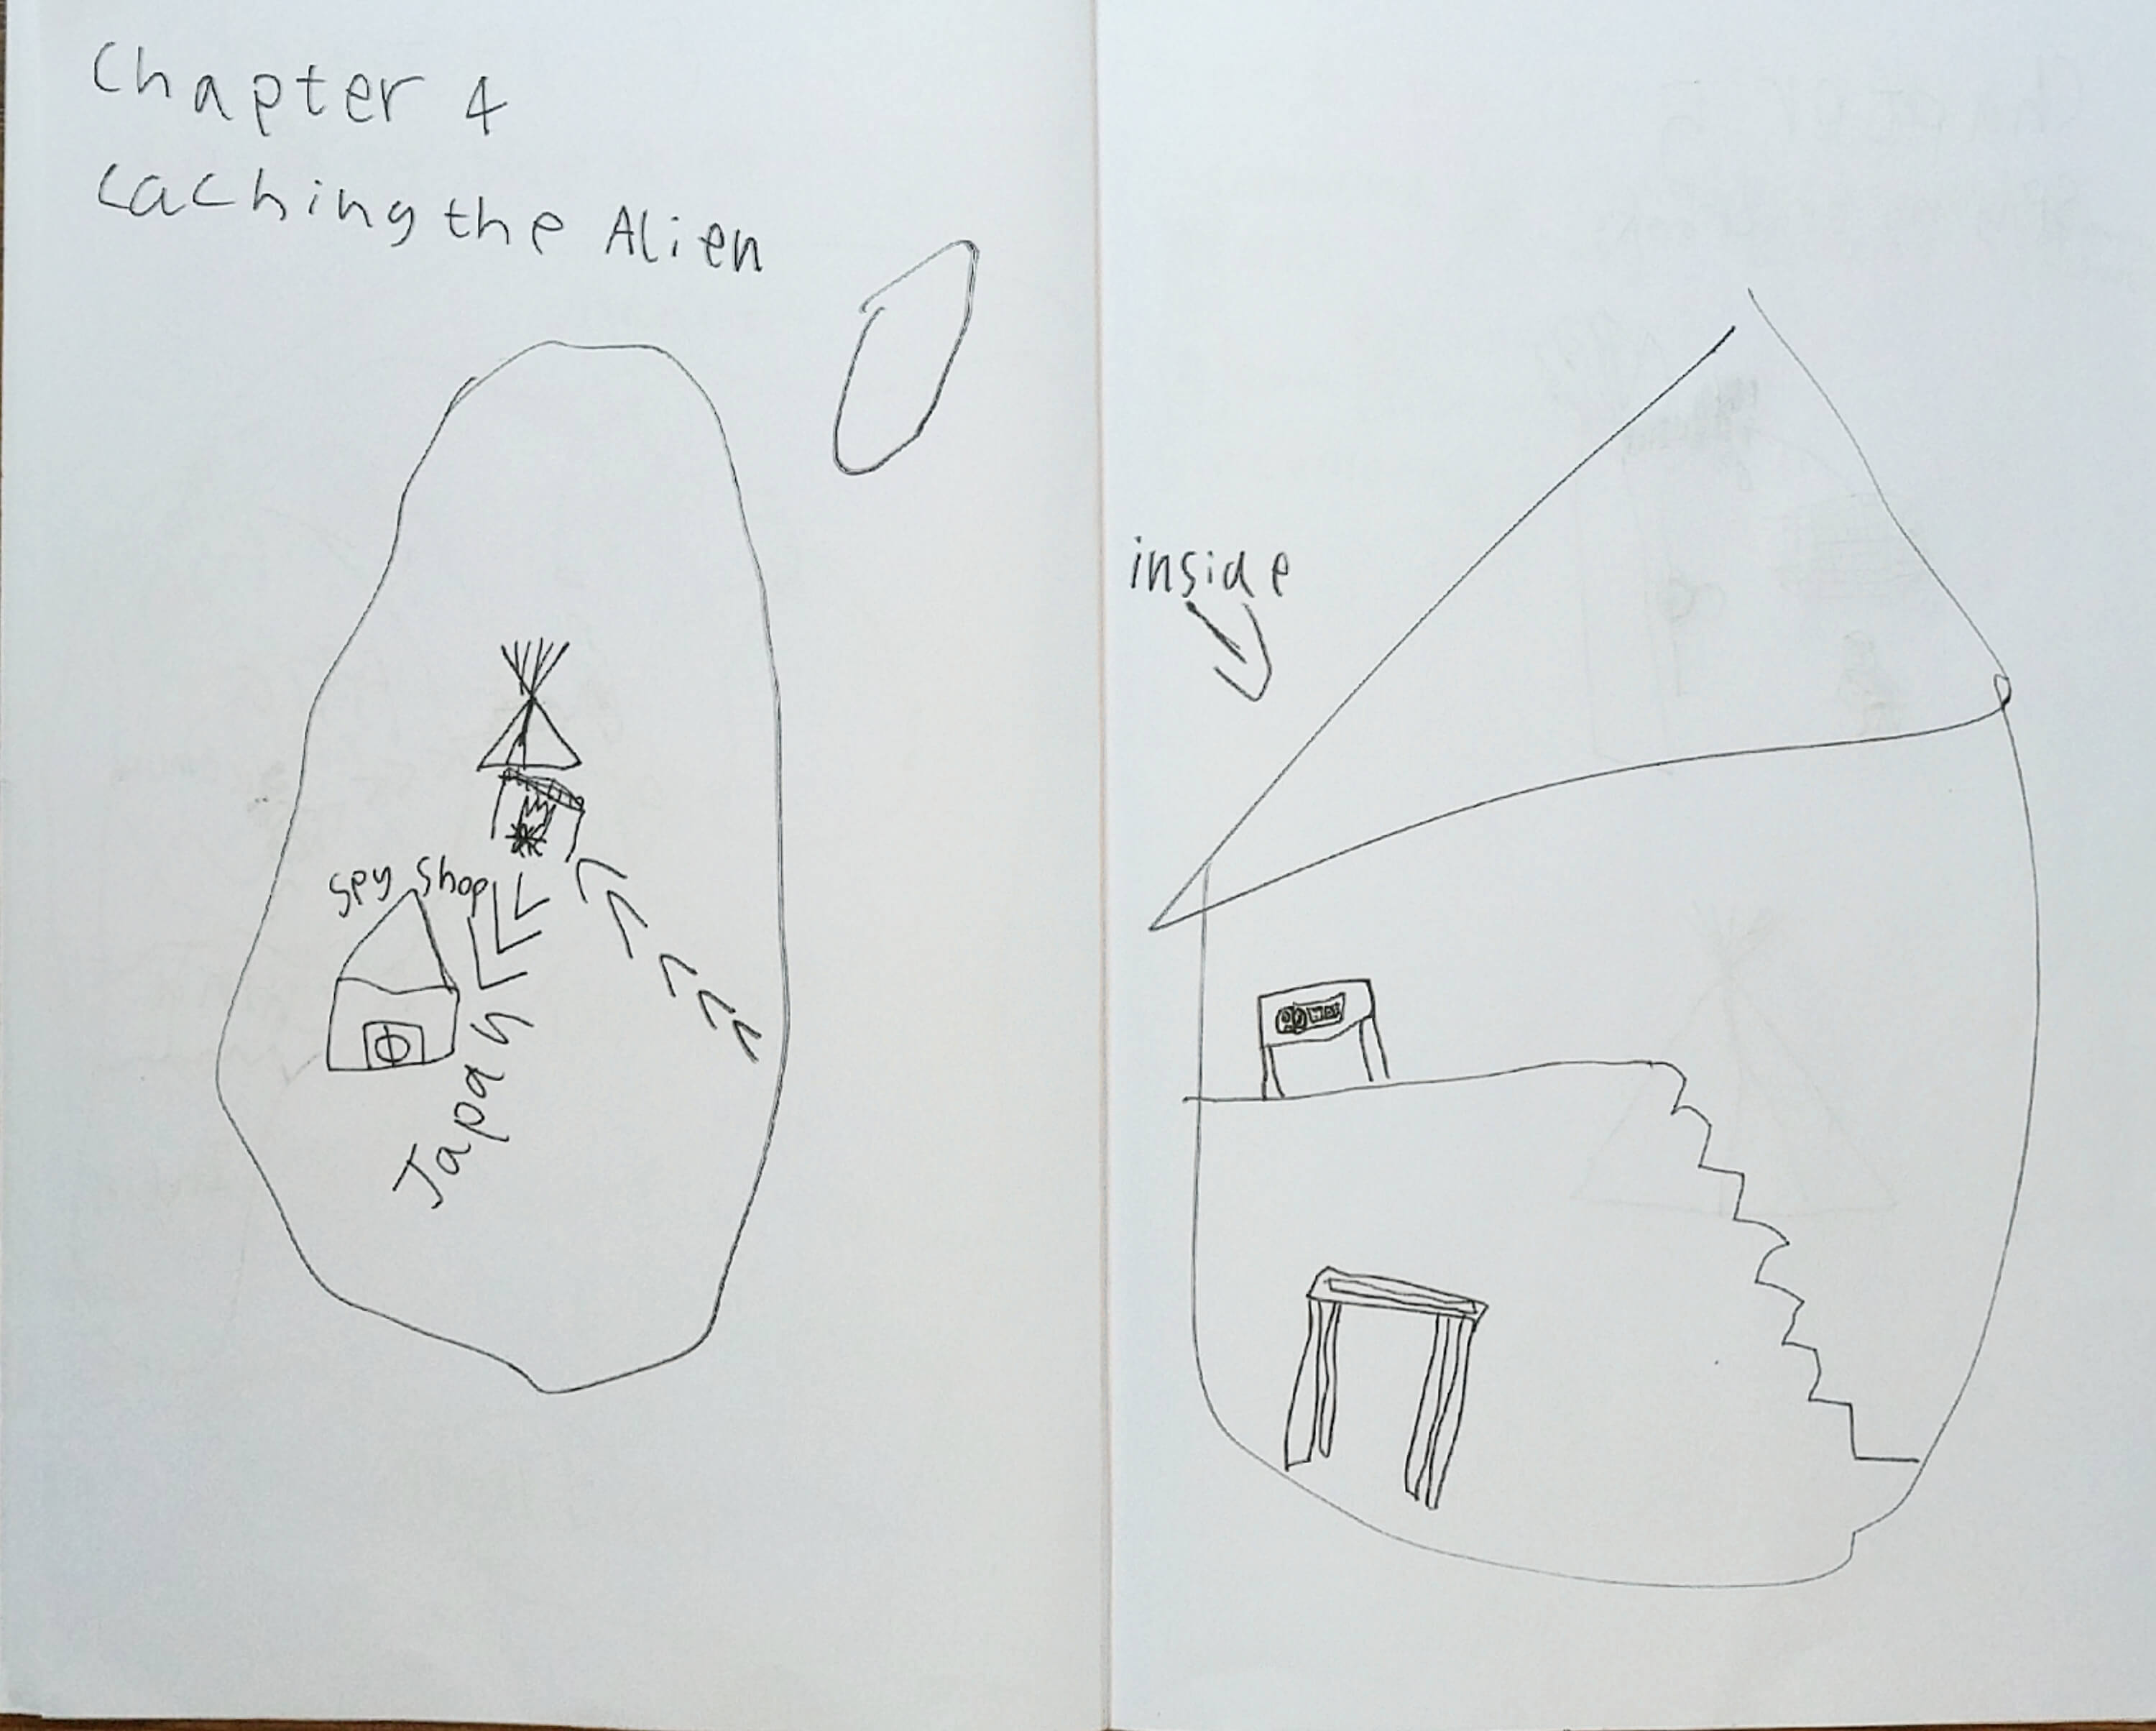 Chapter 4
Caching the Alien
Spy Shop
Japan
inside